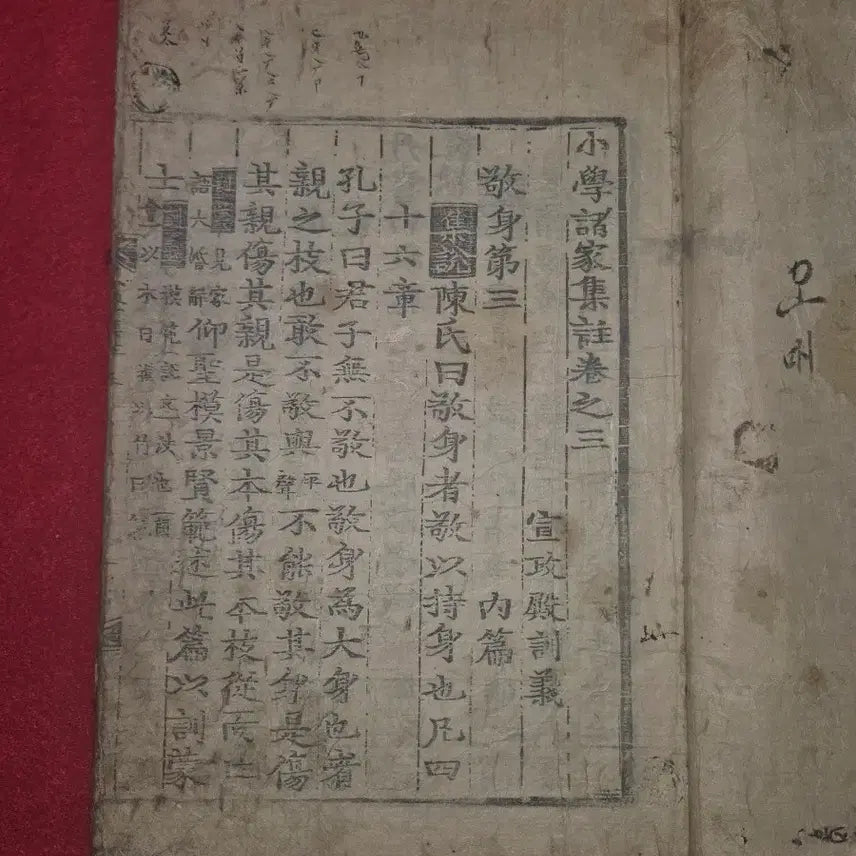 小學諸家集註卷之三
宣政殿訓義
敬身第三 內篇
集說 陳氏曰敬身者敬以持身也凡四
十六章
孔子曰君子無不敬也敬身為大身也者
親之枝也敢不敬與平聲不能敬其身是傷
其親傷其親是傷其本傷其本枝從而亡
見家語大婚解仰聖模景賢範述此篇以訓蒙
士